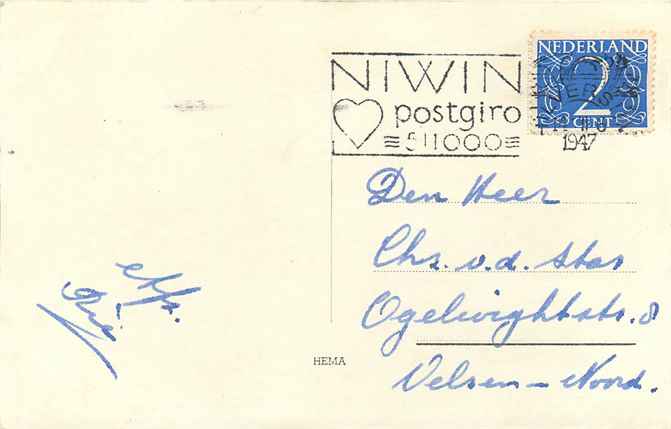 NIWIN
postgiro
511000
NEDERLAND
2
CENT
1947
Den Heer
Chr. v. d.
Ogelwightstr. 8
Velsen-Noord.
Rie
HEMA